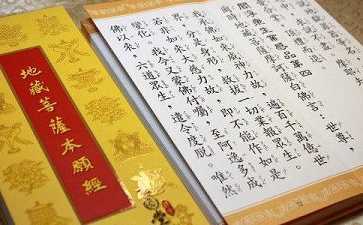 地藏菩薩本願經
閻浮眾生業感品第四
爾時地藏菩薩摩訶薩白佛言：世尊，
我承佛如來威神力故，遍百千萬億世
界，分是身形，救拔一切業報眾生。
若非如來大慈力故，即不能作如是
變化。我今又蒙佛付囑，至阿逸多成
佛以來，六道眾生，遣令度脫。唯然